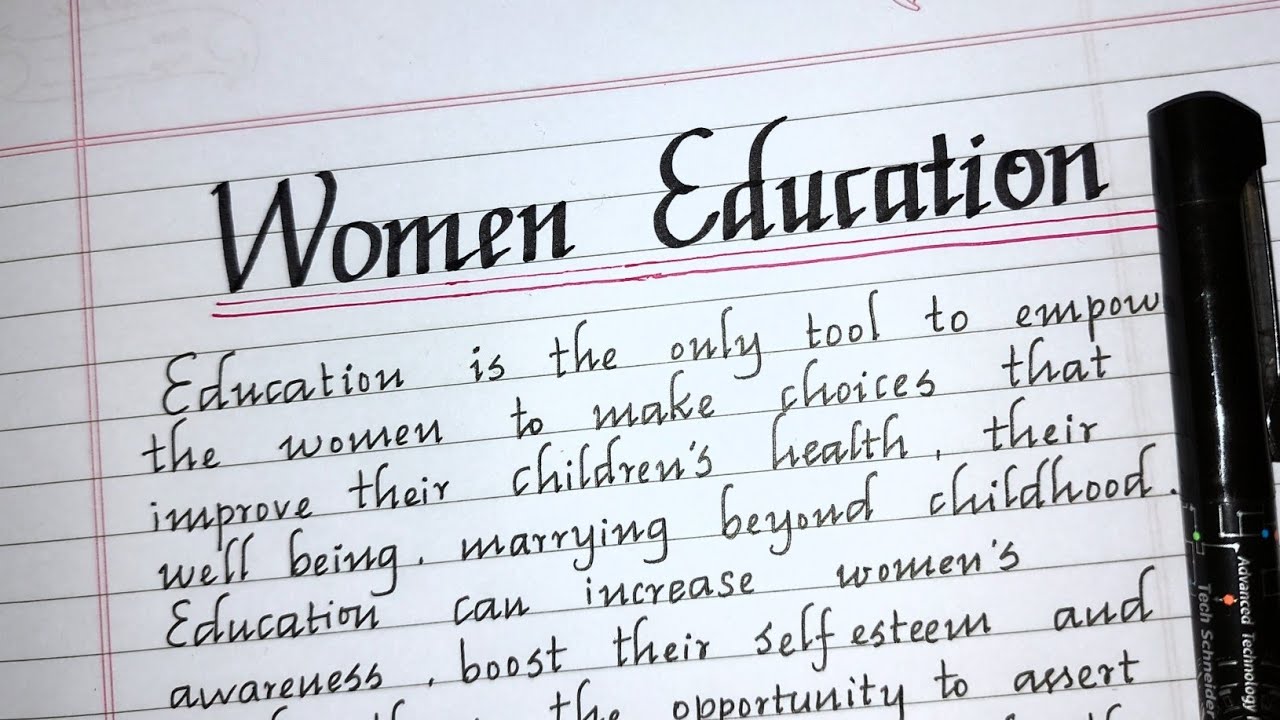 Women Education
Education is the only tool to empow
the women to make choices that
improve their children's health, their
well being, marrying beyond childhood.
Education can increase women's
awareness, boost their self esteem and
the opportunity to assert
Advanced Technology
Tech Schneider